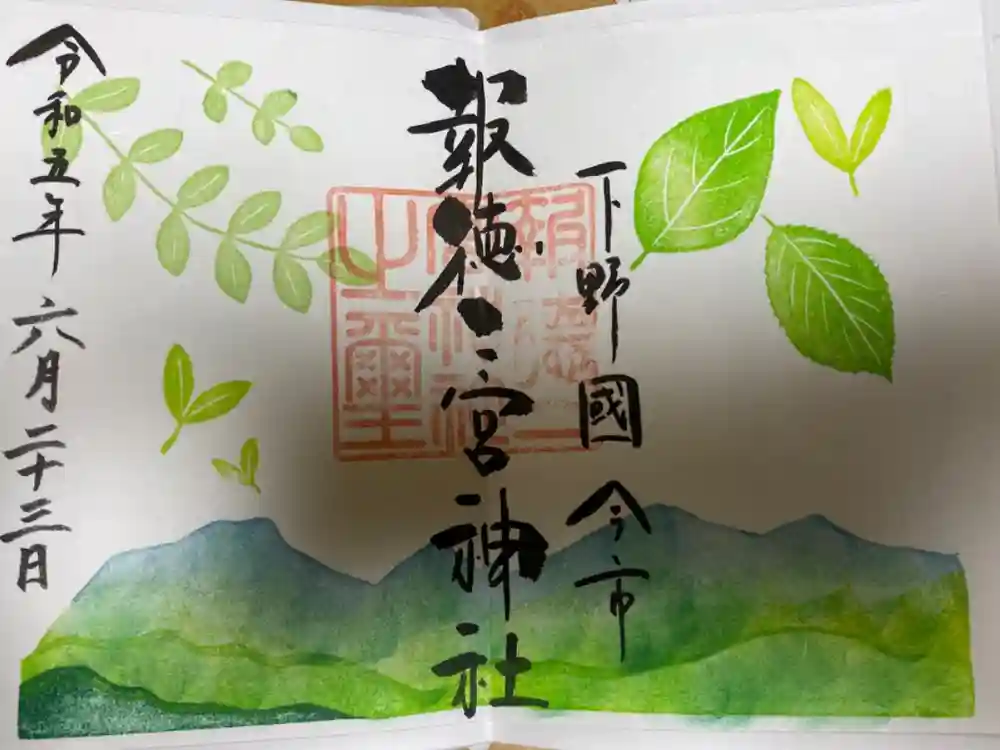 下野國今市
報徳二宮神社
報徳二宮神社之璽
令和五年六月二十三日